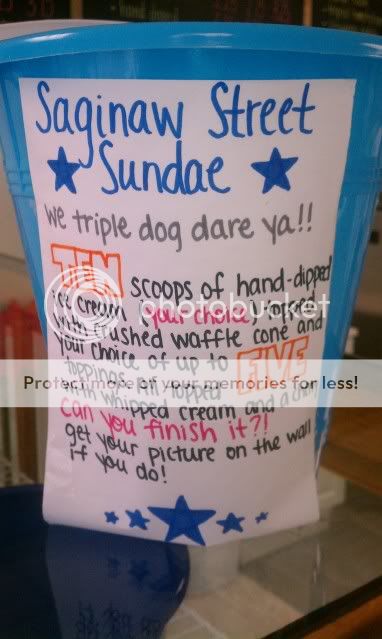 Saginaw Street
Sundae
We triple dog dare ya!!
TEN scoops of hand-dipped
ice cream (your choice) topped
with crushed waffle cone and
your choice of up to FIVE
toppings. All topped
with whipped cream and a cherry
can you finish it?!
get your picture on the wall
if you do!
photobucket
Protect more of your memories for less!